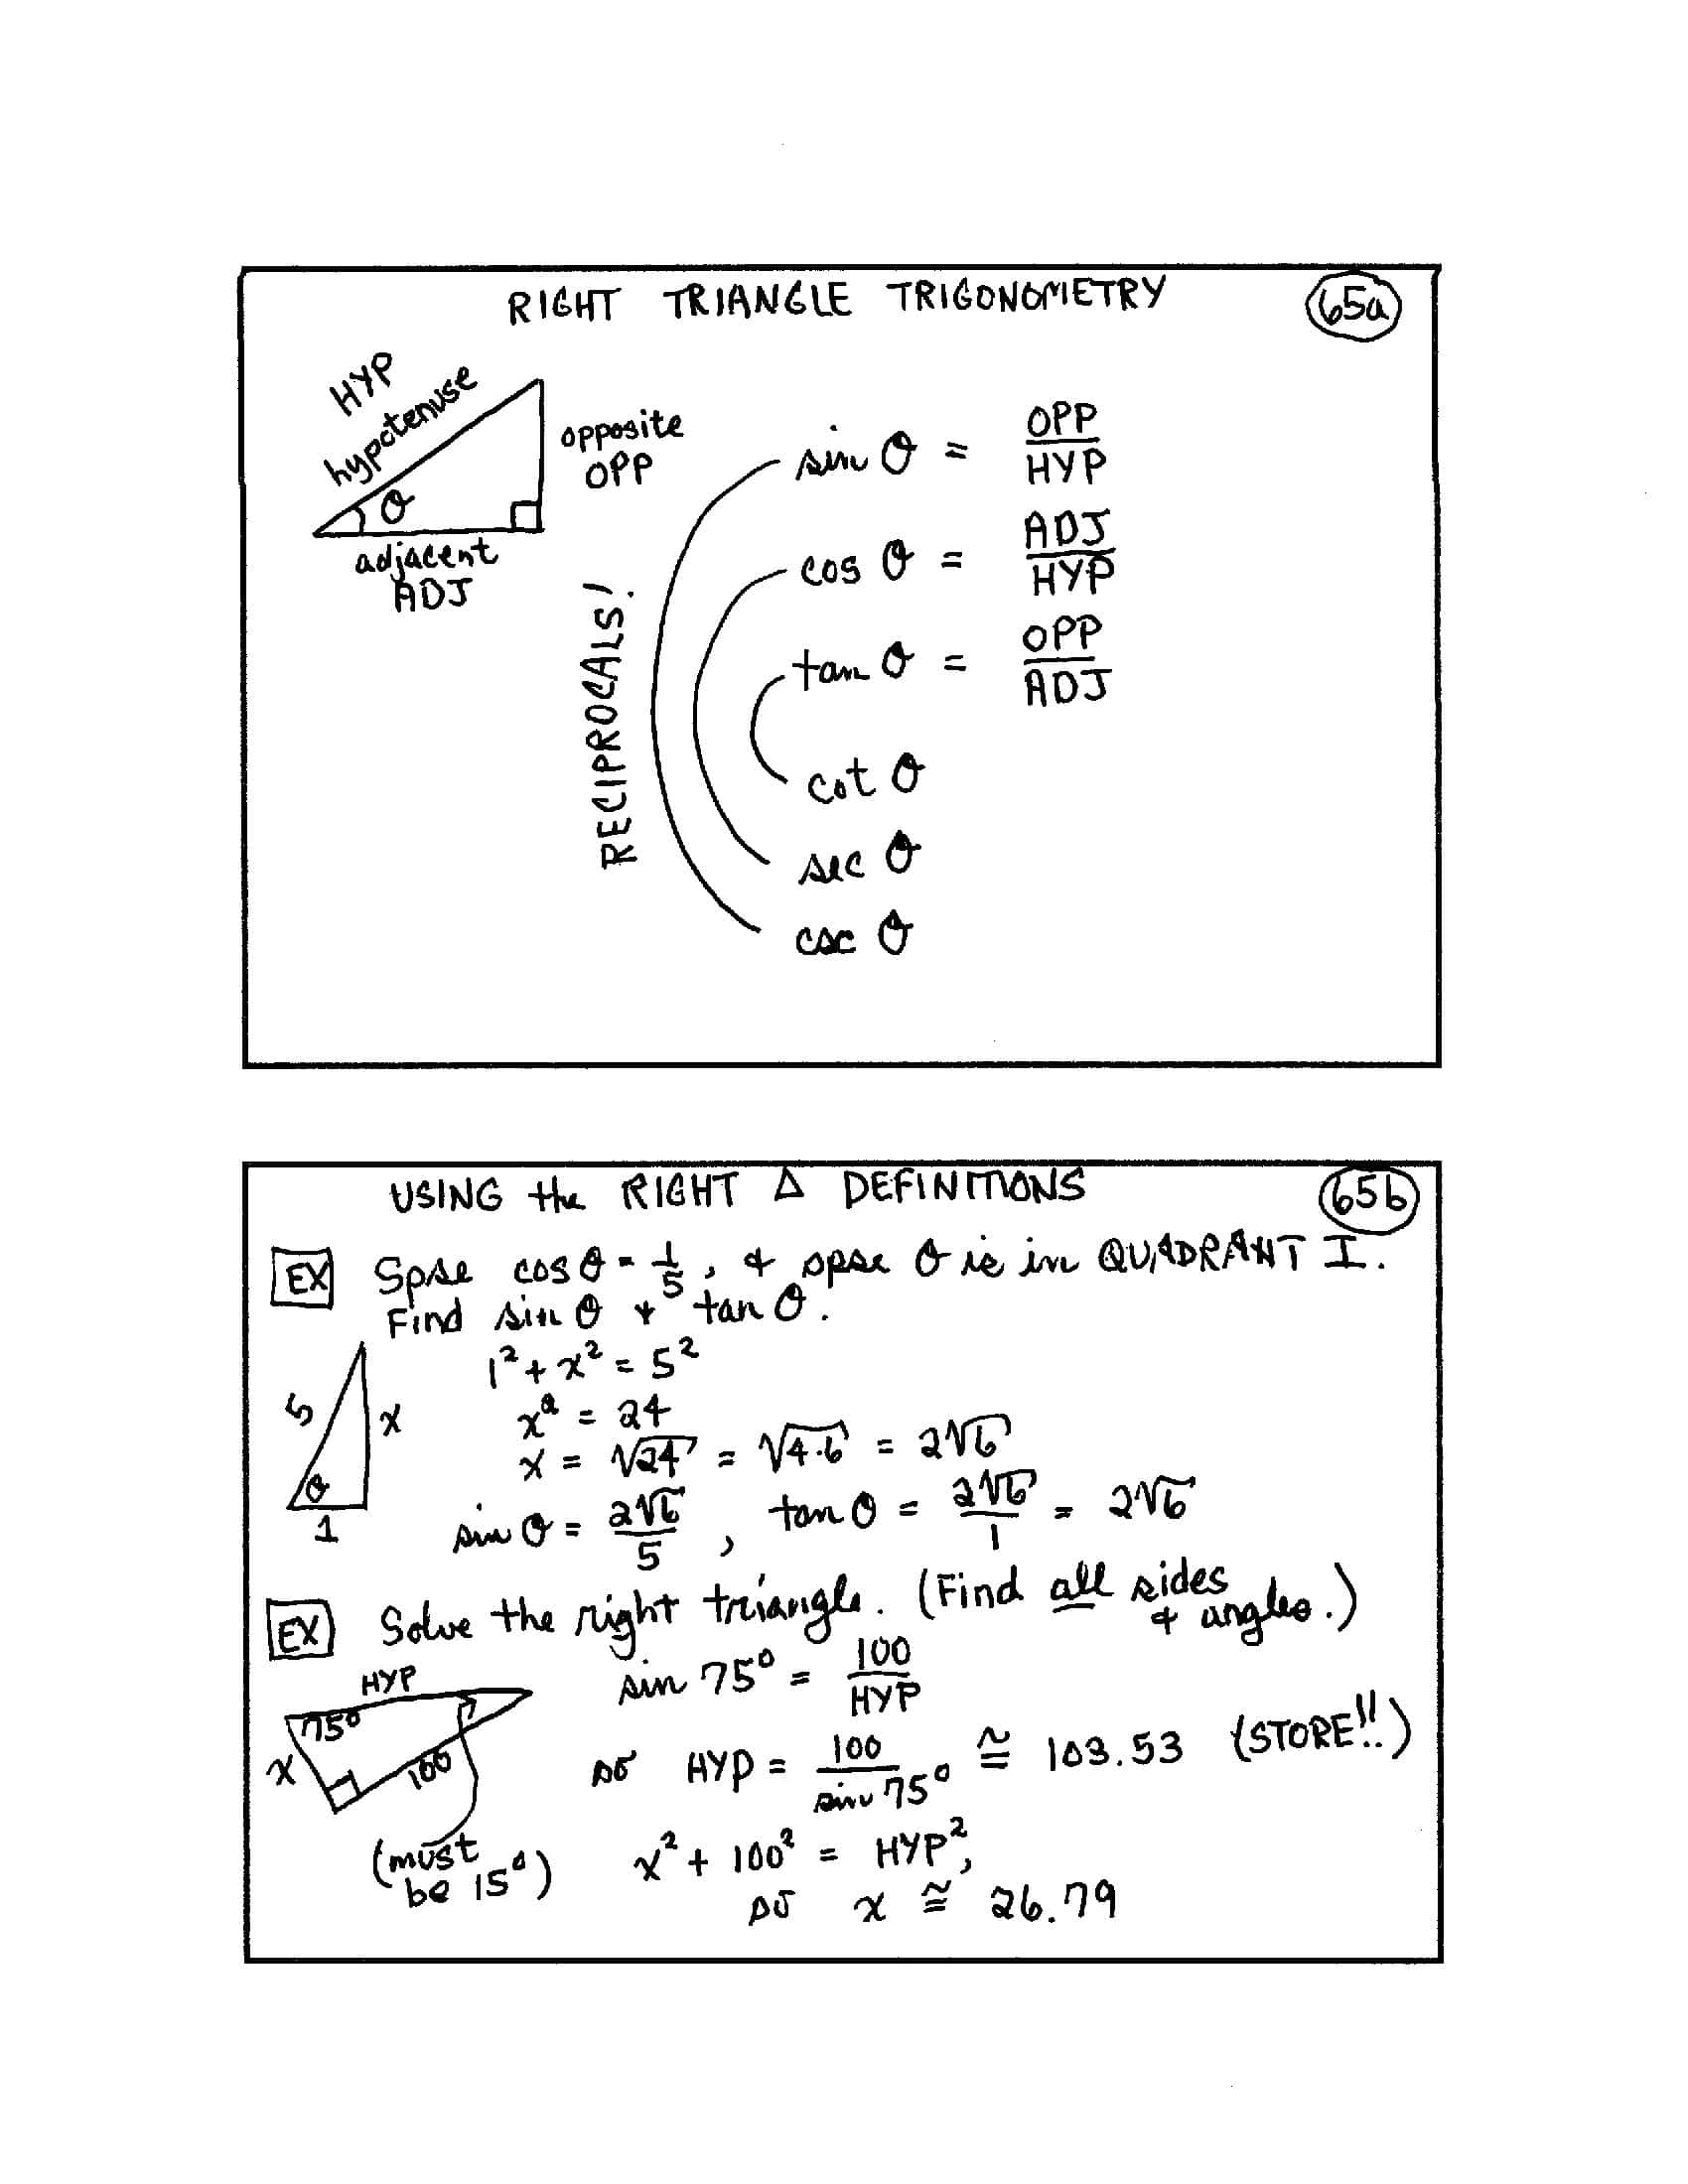 RIGHT TRIANGLE TRIGONOMETRY
65a
HYP
hypotenuse
opposite
OPP
θ
adjacent
ADJ
RECIPROCALS!
sin θ = OPP/HYP
cos θ = ADJ/HYP
tan θ = OPP/ADJ
cot θ
sec θ
csc θ
USING the RIGHT Δ DEFINITIONS
65b
EX Spse cos θ = 1/5, & spse θ is in QUADRANT I.
Find sin θ & tan θ.
5
x
θ
1
1² + x² = 5²
x² = 24
x = √24 = √4·6 = 2√6
sin θ = 2√6/5, tan θ = 2√6/1 = 2√6
EX Solve the right triangle. (Find all sides
& angles.)
HYP
75°
x
100
(must
be 15°)
sin 75° = 100/HYP
so HYP = 100/sin 75° ≅ 103.53 (STORE!!)
x² + 100² = HYP²,
so x ≅ 26.79